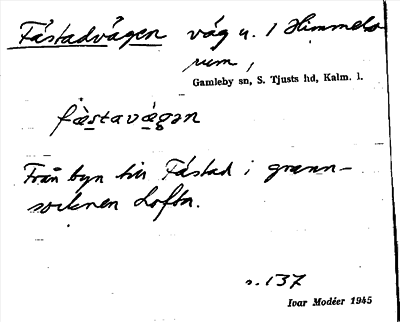 Fästadvägen väg u. 1 Himmels-
rum,
Gamleby sn, S. Tjusts hd, Kalm. l.
fæstavægən
Från byn till Fästad i grann-
socknen Lofta.
s. 137
Ivar Modéer 1945